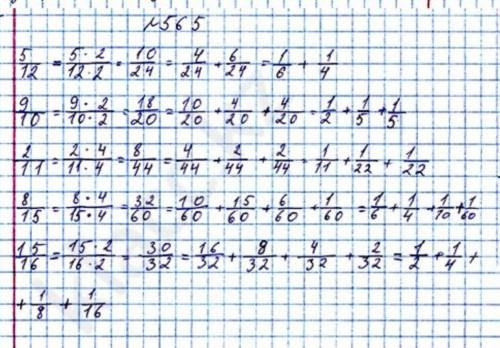 №565
5/12 = 5·2/12·2 = 10/24 = 4/24 + 6/24 = 1/6 + 1/4
9/10 = 9·2/10·2 = 18/20 = 10/20 + 4/20 + 4/20 = 1/2 + 1/5 + 1/5
2/11 = 2·4/11·4 = 8/44 = 4/44 + 2/44 + 2/44 = 1/11 + 1/22 + 1/22
8/15 = 8·4/15·4 = 32/60 = 10/60 + 15/60 + 6/60 + 1/60 = 1/6 + 1/4 + 1/10 + 1/60
15/16 = 15·2/16·2 = 30/32 = 16/32 + 8/32 + 4/32 + 2/32 = 1/2 + 1/4 +
+ 1/8 + 1/16